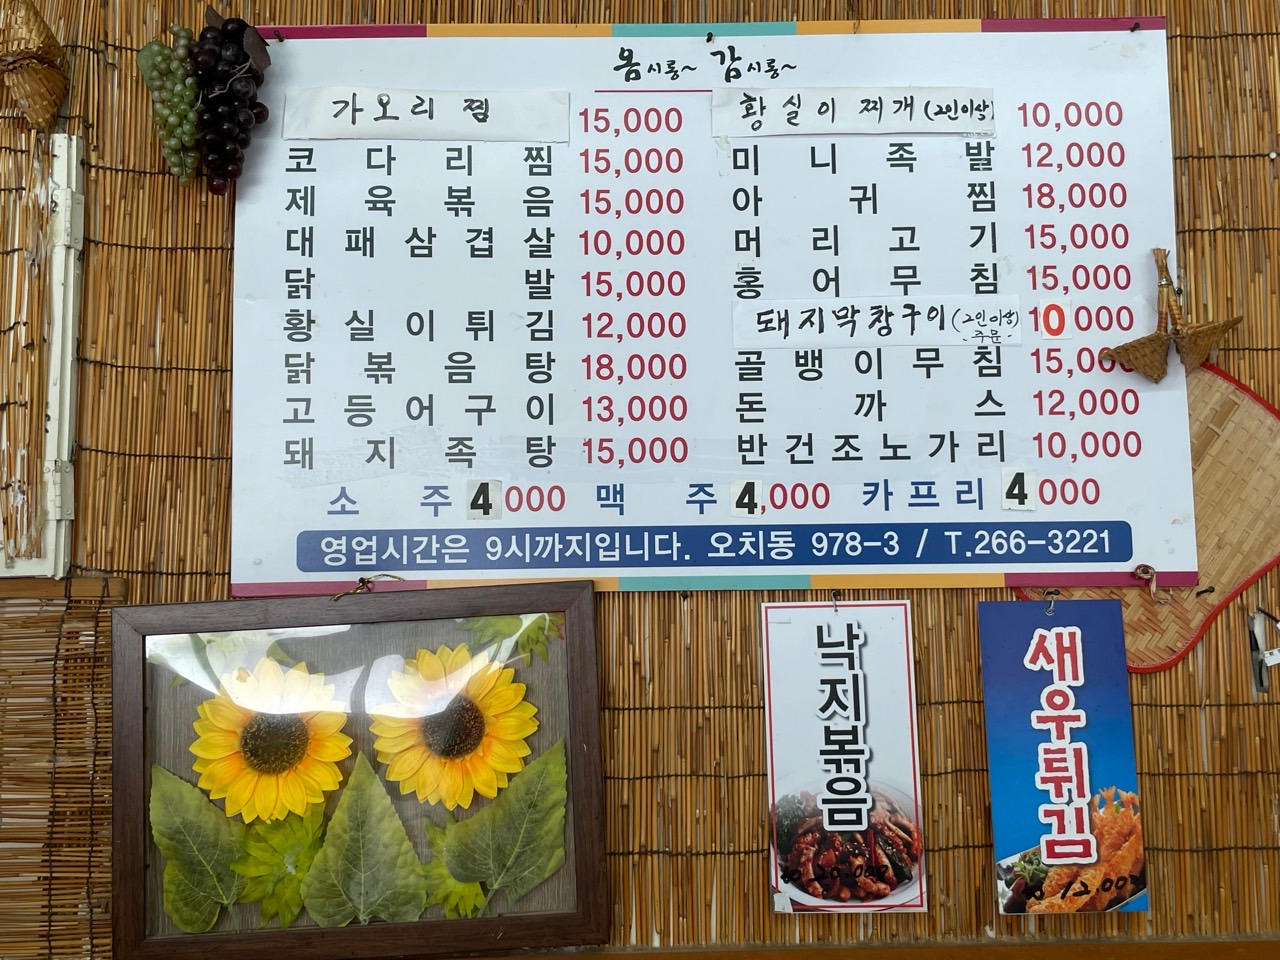 옴시롱~ 감시롱~
가오리찜 15,000 황실이찌개(2인이상) 10,000
코다리찜 15,000 미니족발 12,000
제육볶음 15,000 아귀찜 18,000
대패삼겹살 10,000 머리고기 15,000
닭발 15,000 홍어무침 15,000
황실이튀김 12,000 돼지막창구이(2인이상 주문) 10 000
닭볶음탕 18,000 골뱅이무침 15,000
고등어구이 13,000 돈까스 12,000
돼지족탕 15,000 반건조노가리 10,000
소주 4 000 맥주 4,000 카프리 4 000
영업시간은 9시까지입니다. 오치동 978-3 / T.266-3221
낙지볶음
20,000
새우튀김
12,000